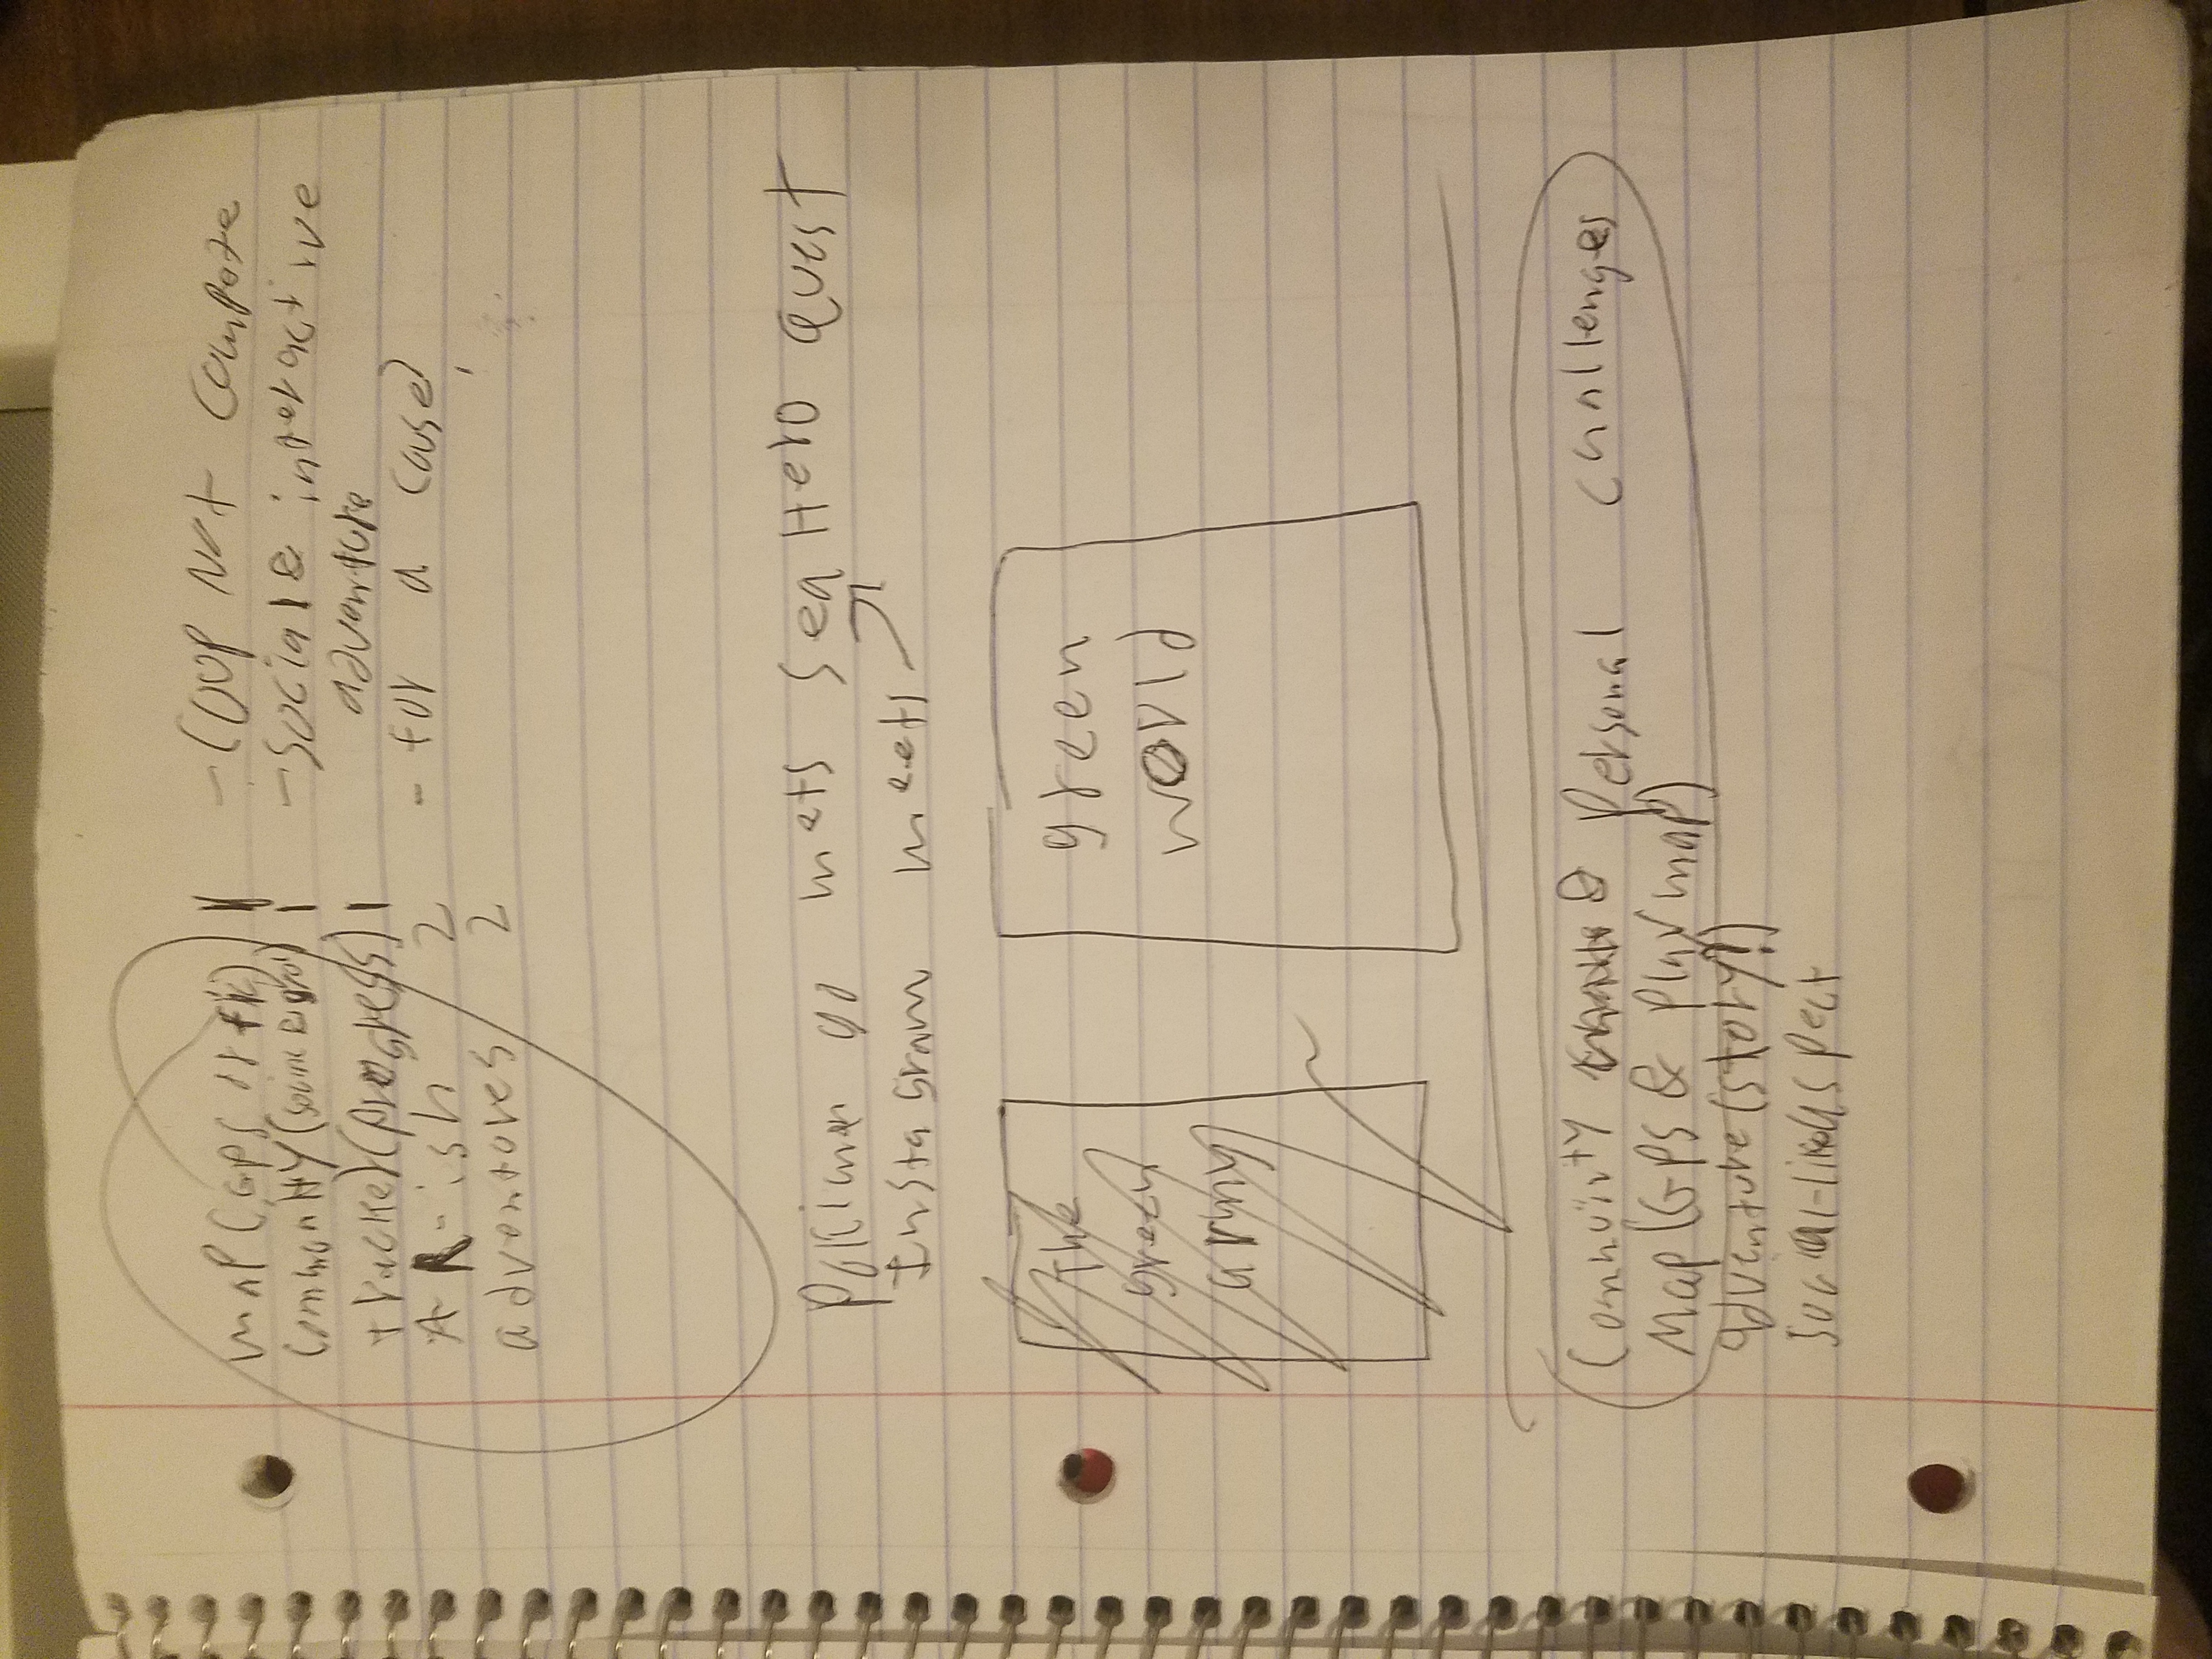 map (GPS or) 1
community (social) 1
tracker (progress) 1
AR-ish 2
adventures 2
- COOP Not Compete
- Social & interactive
adventure
- for a cause
Pokimen go mets Sea Hero Quest
Instagram meets
The
green
army
green
world
Community & Personal challenges
Map (GPS & Play map)
adventure (story?)
Social-like aspect